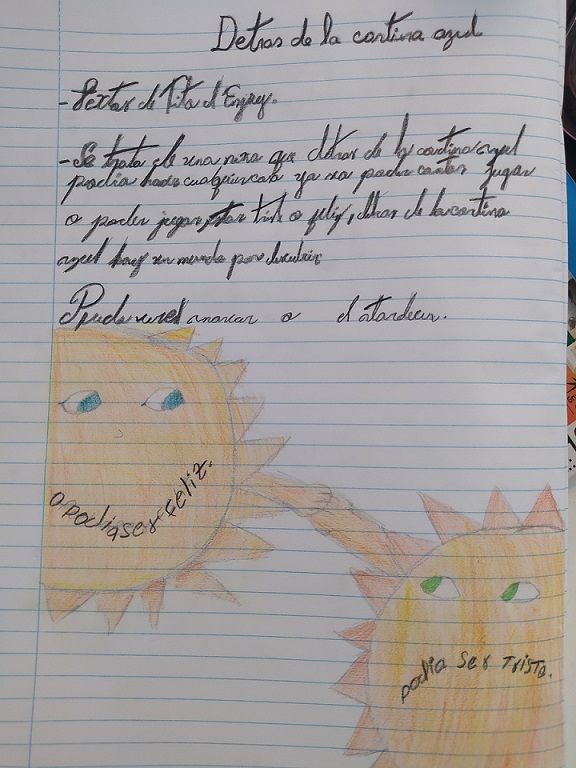 Detras de la cortina azul
- de
- Se trata de una que detras de la cortina azul
podia cualquier cosa ya sea poder cantar jugar
o poder jugar estar triste o feliz, detras de la cortina
azul hay un mundo por descubrir
Puede amanecer o el atardecer.
o podia ser feliz.
podia ser triste.